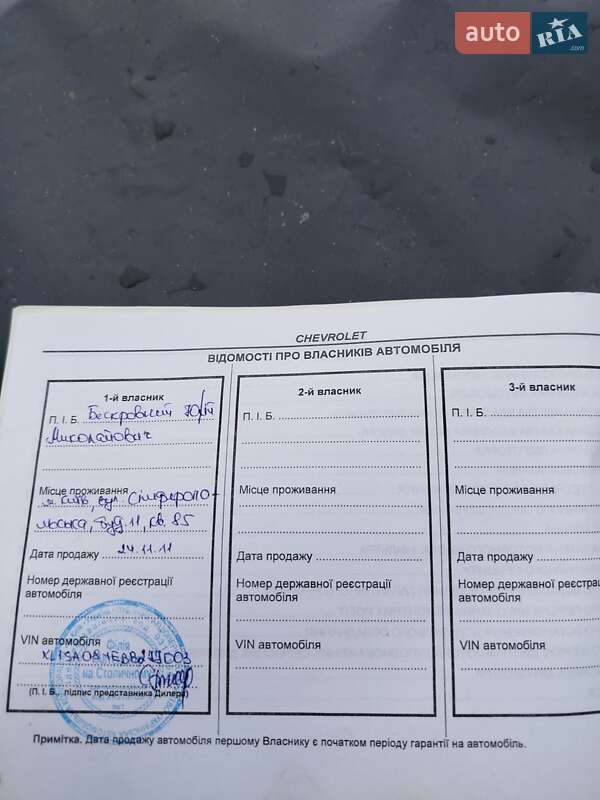 auto RIA.com
CHEVROLET
ВІДОМОСТІ ПРО ВЛАСНИКІВ АВТОМОБІЛЯ
1-й власник
П. І. Б. Бескровний Юрій
Миколайович
Місце проживання
м. Київ, вул. Сімферопо-
льська, буд. 11, кв. 85
Дата продажу 24.11.11
Номер державної реєстрації
автомобіля
VIN автомобіля
Філія
на Столичному
(П. І. Б., підпис представника Дилера)
2-й власник
П. І. Б.
Місце проживання
Дата продажу
Номер державної реєстрації
автомобіля
VIN автомобіля
3-й власник
П. І. Б.
Місце проживання
Дата продажу
Номер державної
автомобіля
VIN автомобіля
Примітка. Дата продажу автомобіля першому Власнику є початком періоду гарантії на автомобіль.